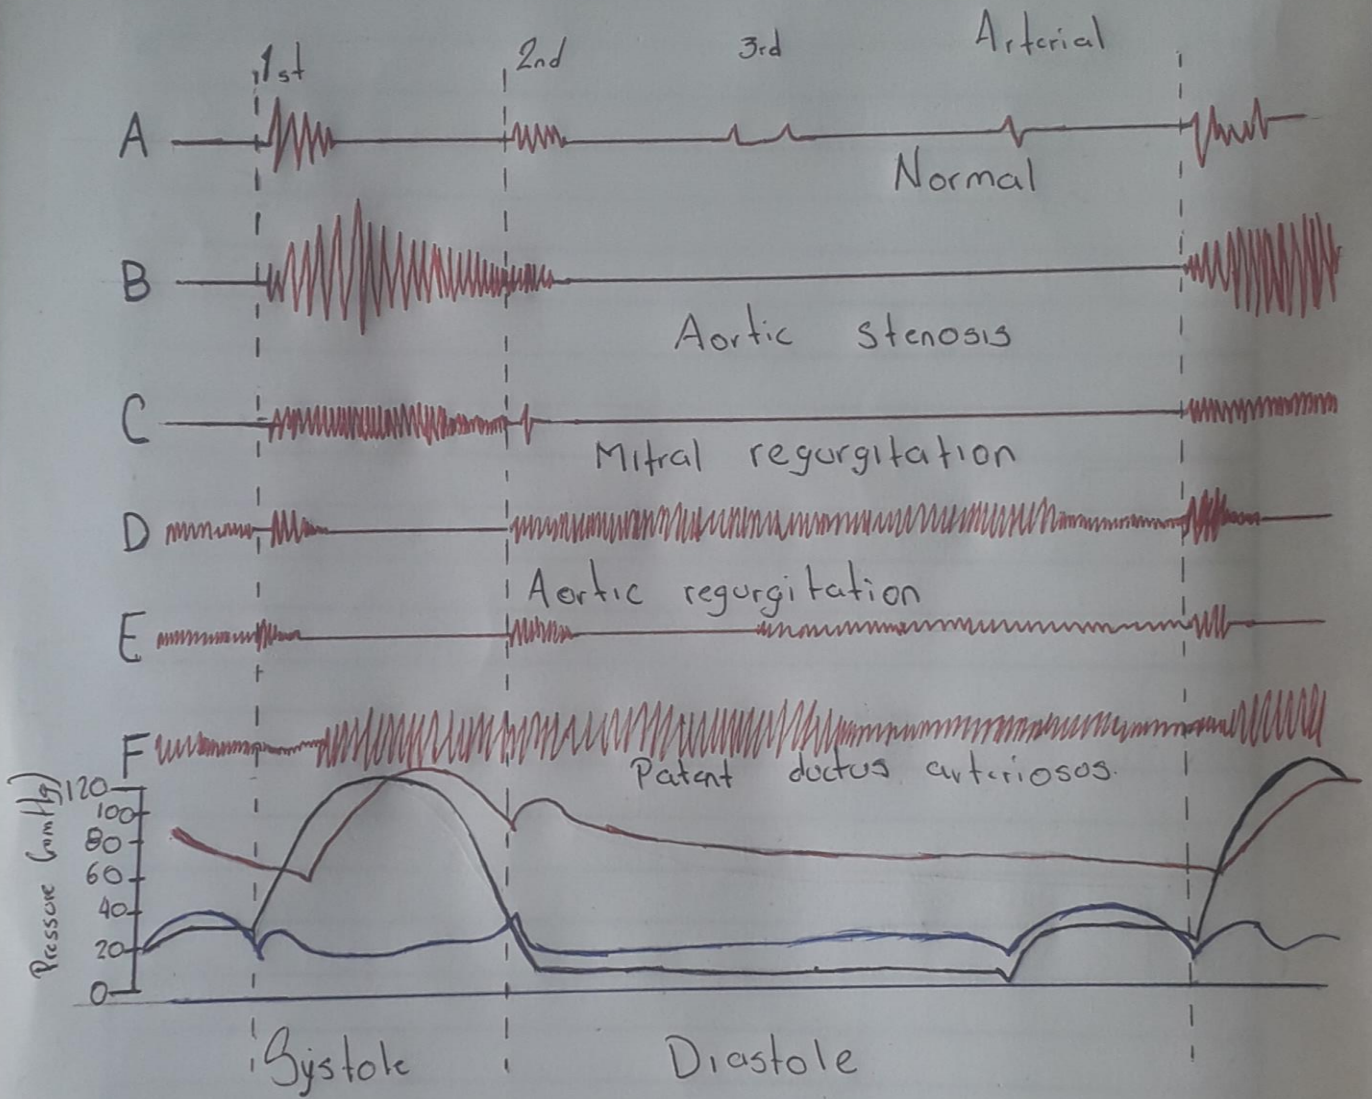 1st 2nd 3rd Arterial
A
Normal
B
Aortic stenosis
C
Mitral regurgitation
D
Aortic regurgitation
E
F
Patent ductus arteriosos.
Pressure (mmHg)
120
100
80
60
40
20
0
Systole Diastole